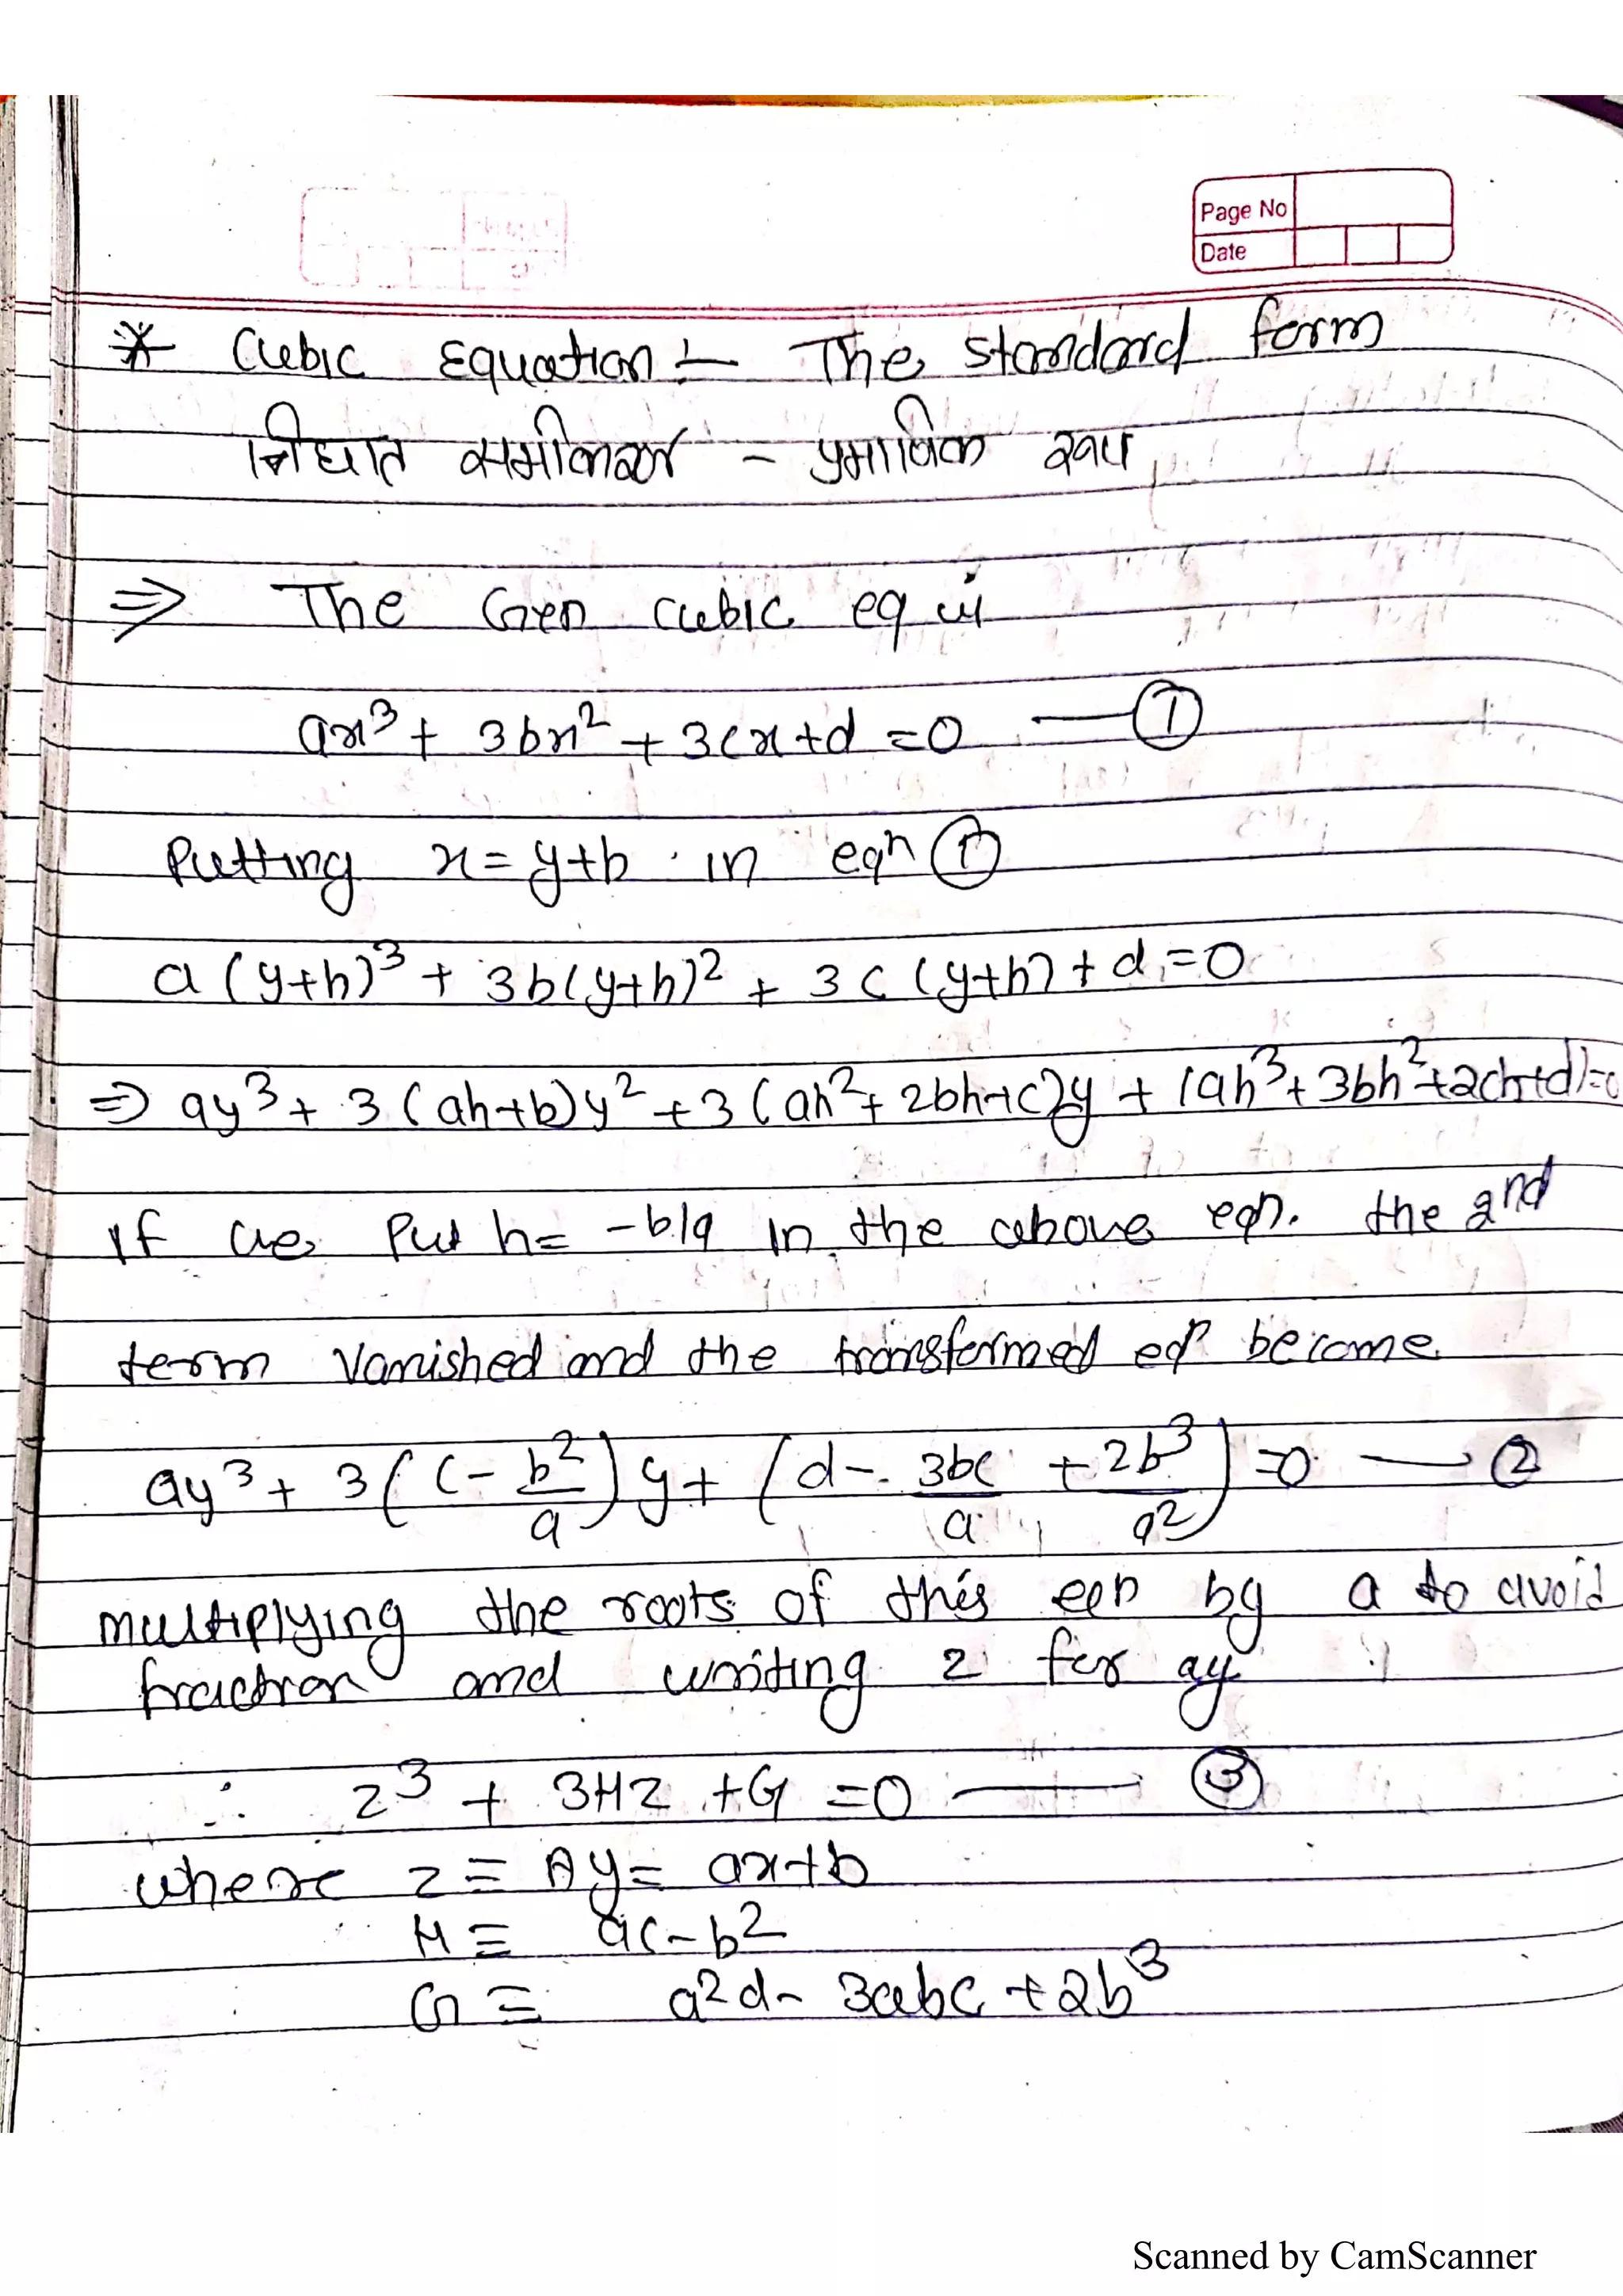 Page No
Date
* Cubic Equation :- The standard form
त्रिघात समीकरण - प्रमाणिक रूप
⇒ The Gen cubic eq is
ax³ + 3bx² + 3cx + d = 0 — ①
Putting x = y+b in eqⁿ ①
a(y+h)³ + 3b(y+h)² + 3c(y+h) + d = 0
⇒ ay³ + 3(ah+b)y² + 3(ah²+2bh+c)y + (ah³+3bh²+2ch+d)=0
If we Put h = -b/a in the above eqn. the 2nd
term Vanished and the transformed eqⁿ become
ay³ + 3(c - b²/a)y + (d - 3bc/a + 2b³/a²) = 0 — ②
multiplying the roots of this eqn by a to avoid
fraction and writing z for ay
∴ z³ + 3Hz + G = 0 — ③
where z ≡ Ay = ax+b
H ≡ ac - b²
G ≡ a²d - 3abc + 2b³
Scanned by CamScanner